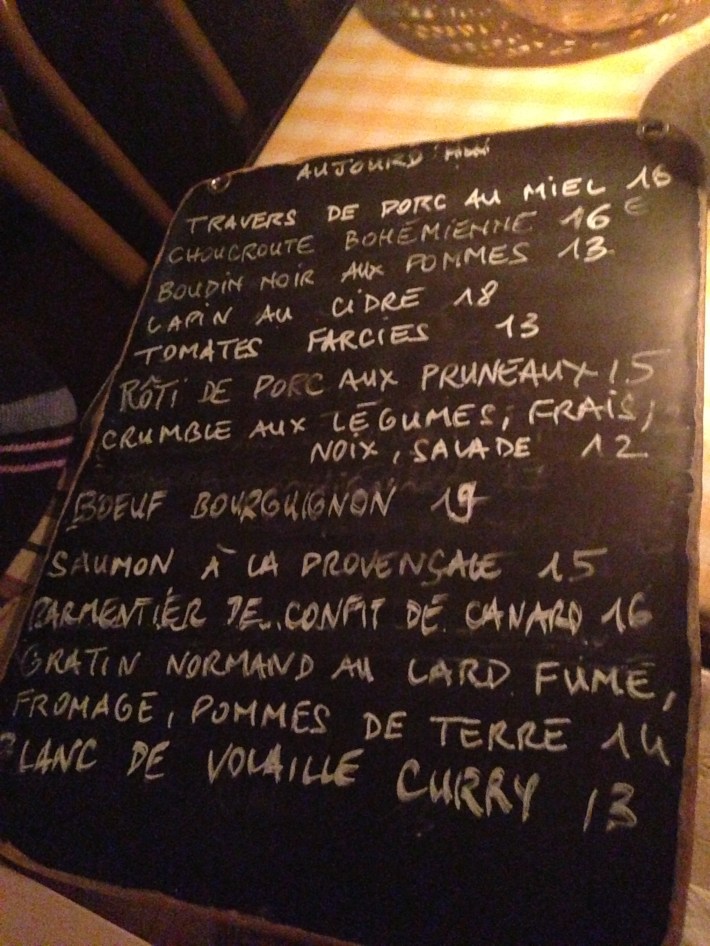 AUJOURD'HUI
TRAVERS DE PORC AU MIEL 16
CHOUCROUTE BOHÉMIENNE 16 €
BOUDIN NOIR AUX POMMES 13
LAPIN AU CIDRE 18
TOMATES FARCIES 13
RÔTI DE PORC AUX PRUNEAUX 15
CRUMBLE AUX LÉGUMES, FRAIS,
NOIX, SALADE 12
BOEUF BOURGUIGNON 19
SAUMON À LA PROVENÇALE 15
PARMENTIER DE CONFIT DE CANARD 16
GRATIN NORMAND AU LARD FUMÉ,
FROMAGE, POMMES DE TERRE 14
BLANC DE VOLAILLE CURRY 13